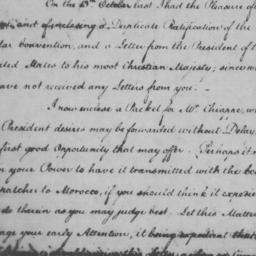 On the 13th October last I had the Pleasure of
and of enclosing a Duplicate Ratification of the
Convention, and a Letter from the President of t
States to his most Christian Majesty; since w
have not received any Letters from you. —
I now enclose a Packet for Mr. Chiappe, w
President desires may be forwarded without Delay,
first good Opportunity that may offer. Perhaps it
your Power to have it transmitted with the
patches to Morocco, if you should think it expedie
do therein as you may judge best. Let this Matter
your early Attention, it being expedient that